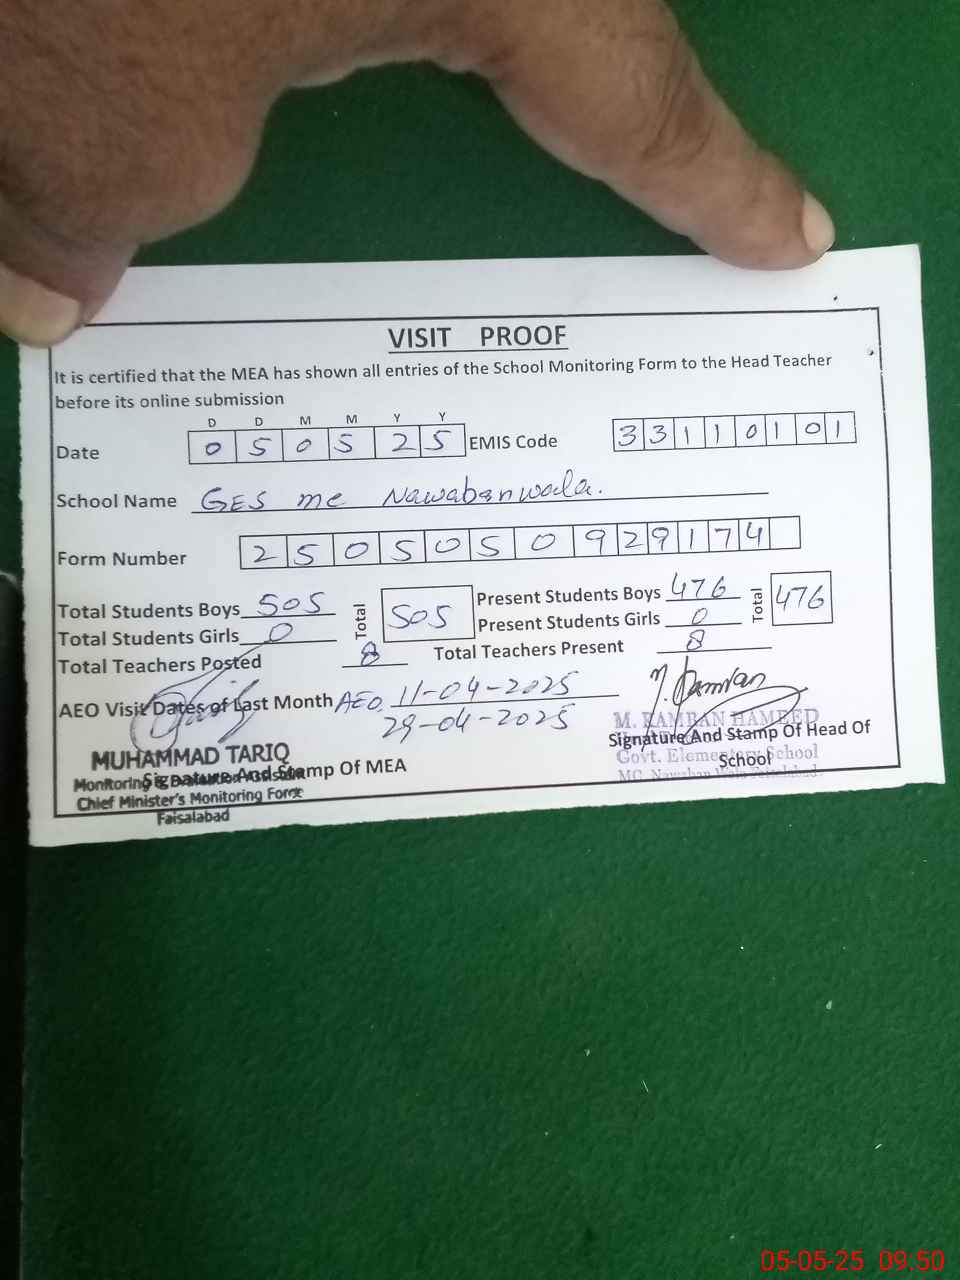 VISIT PROOF
It is certified that the MEA has shown all entries of the School Monitoring Form to the Head Teacher
before its online submission
D D M M Y Y
Date 0 5 0 5 2 5 EMIS Code 3 3 1 1 0 1 0 1
School Name GES mc Nawabanwala.
Form Number 2 5 0 5 0 5 0 9 2 9 1 7 4
Total Students Boys 505 Total 505 Present Students Boys 476 Total 476
Total Students Girls 0 Present Students Girls 0
Total Teachers Posted 8 Total Teachers Present 8
AEO Visit Dates of Last Month AEO. 11-04-2025
29-04-2025
M. Kamran
M. KAMRAN HAMEED
Signature And Stamp Of Head Of
School
Govt. Elementary School
MC Nawaban Wala Faisalabad.
MUHAMMAD TARIQ
Signature And Stamp Of MEA
Monitoring &
Chief Minister's Monitoring Force
Faisalabad
05-05-25 09.50